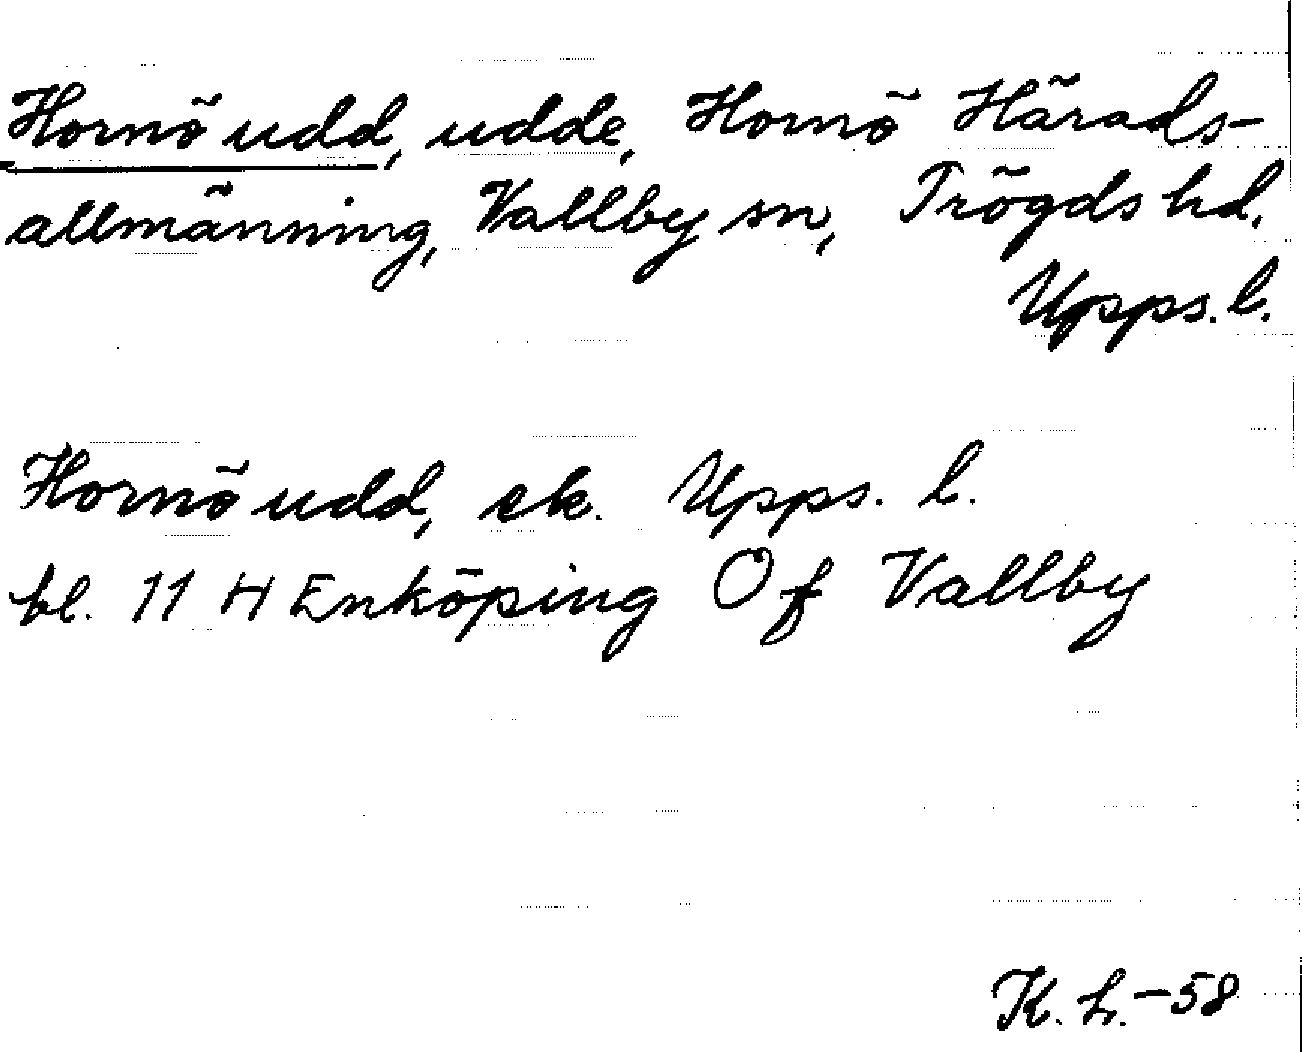 Hornö udd, udde, Hornö Härads-
allmänning, Vallby sn, Trögds hd,
Upps. l.
Hornö udd, ek. Upps. l.
bl. 11 H Enköping Of Vallby
K. h. -58